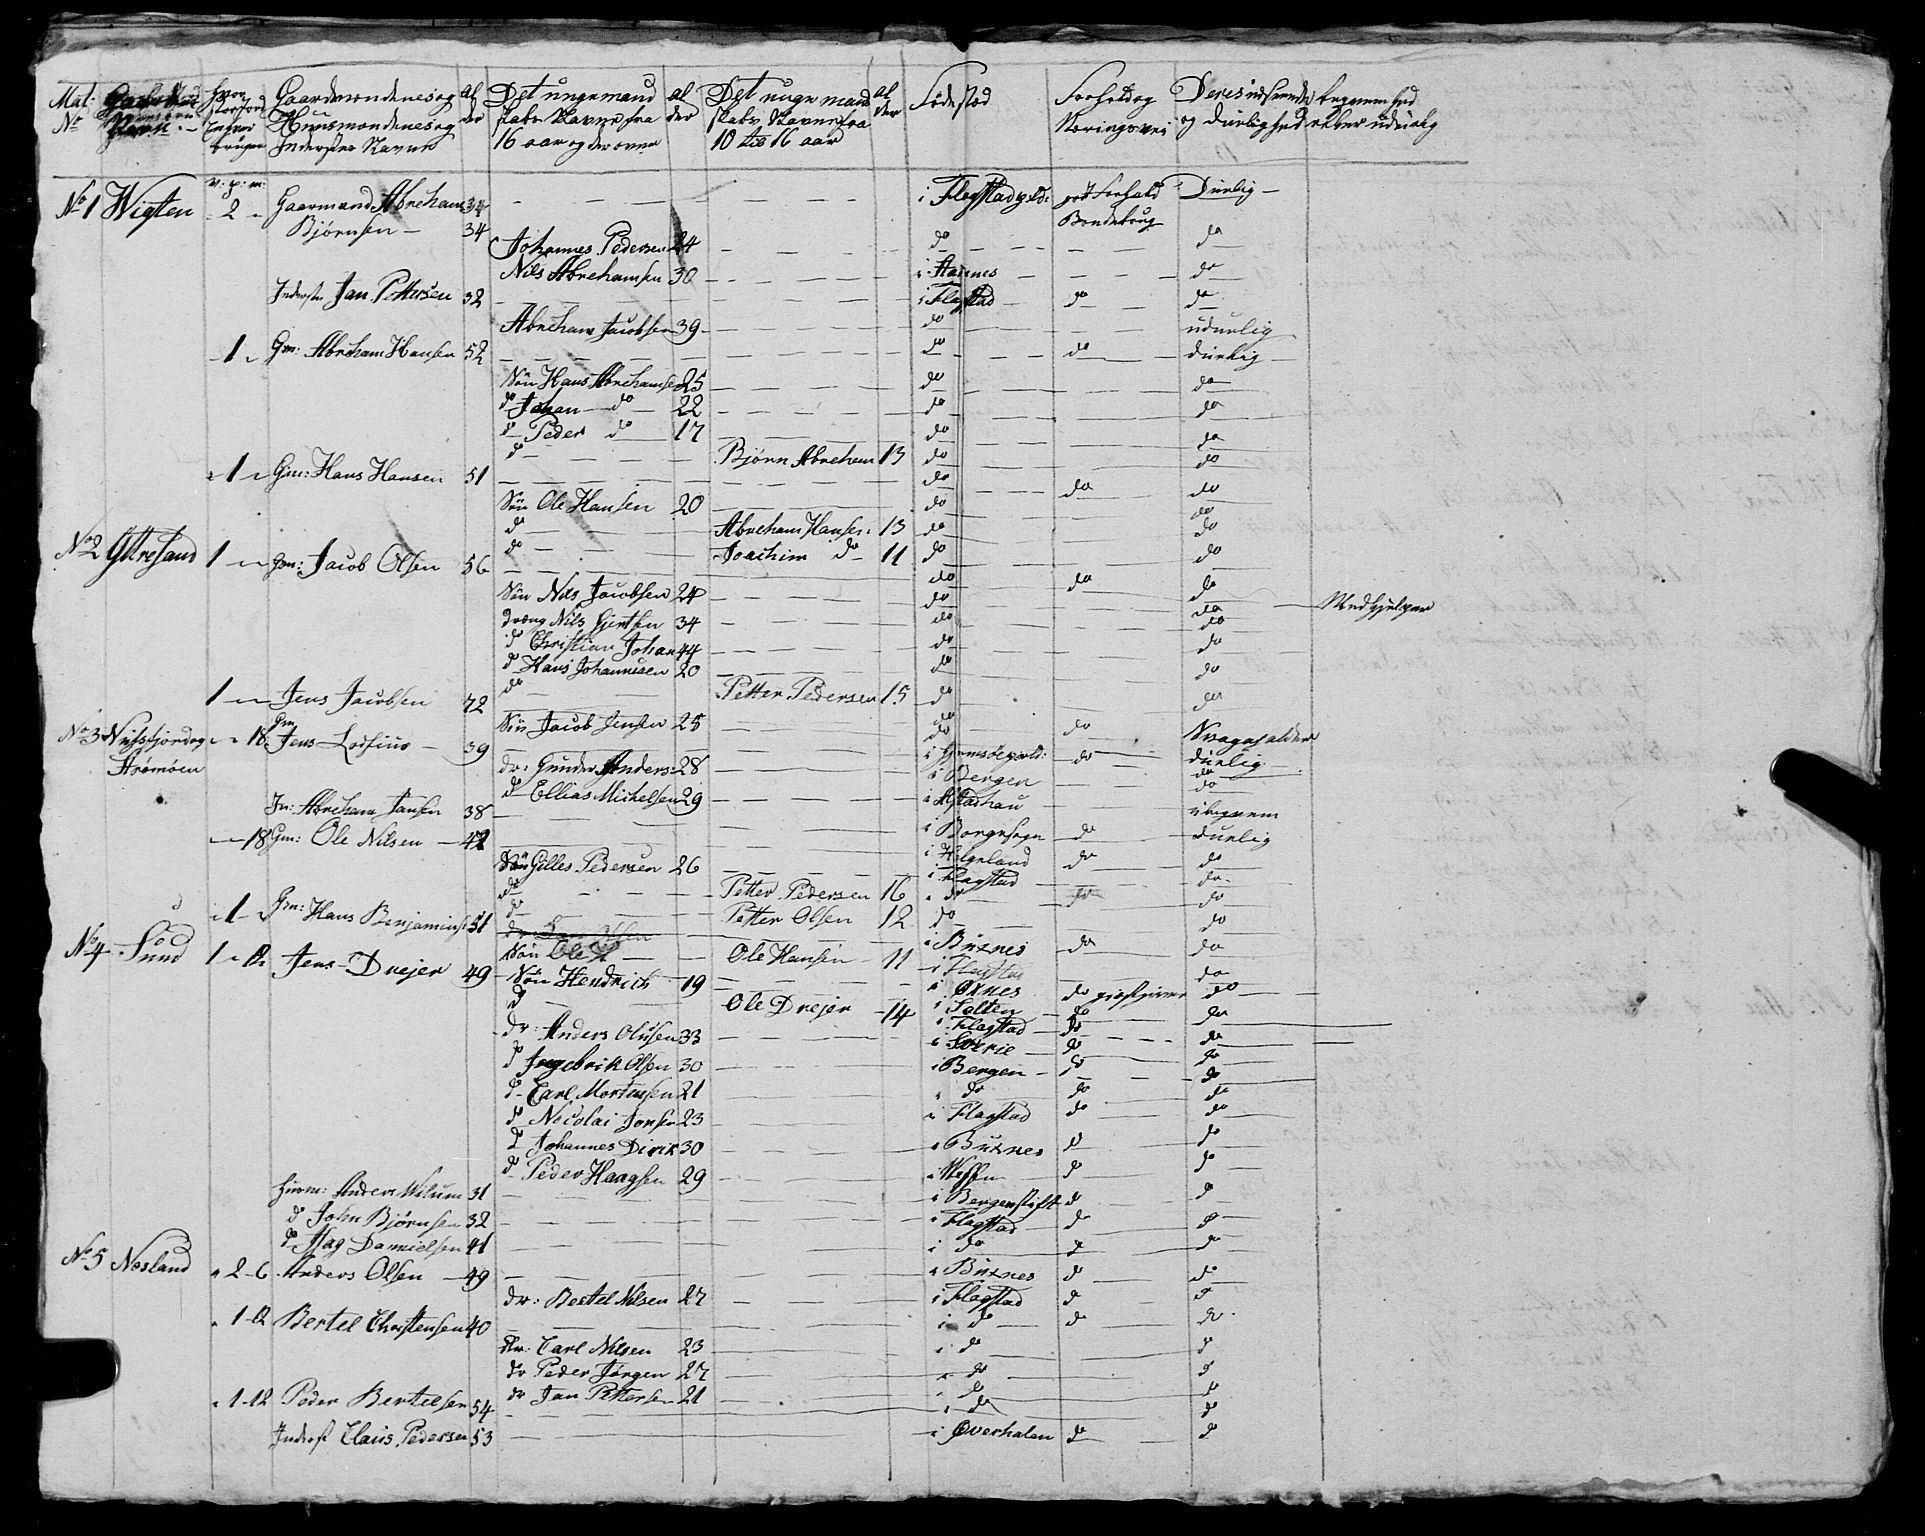 Mat: No Gaardens Navn Hvor stor Jord enhver bruger Gaardmændenes og Huusmændenes og Inderster Navne al der Det unge mand skabs Navne fra 16 aar og der over al der Det unge mand skabs Navne fra 10 til 16 aar al der Födested Forhold og Næringsvei Deres udseende bequemhed og Duelighed eller uduelig
v: p: m:
No 1 Wigten 2 Gaarmand Abreham 34 i Flagstad gield: got Forhold Duelig
Björnsen 34 Bondebrug
Johannes Pedersen 24 do do
Nils Abrehamsen 30 i Stamnes do
Inderste Jan Pettersen 32 i Flagstad do do
Abreham Jacobsen 39 do uduelig
1 Gm: Abreham Hansen 52 do do duelig
Sön Hans Abrehamse 25 do do
do Johan do 22 do do
do Peder do 17 do do
do Björn Abreham 13 do do
1 Gm: Hans Hansen 51 do do do
Sön Ole Hansen 20 do do
do Abreham Hansen 13 do do
do Joachim do 11 do do
No 2 Yttresand 1 Gm: Jacob Olsen 56 do do do Medhjelper
Sön Nils Jacobsen 24 do do
Dreng Nils Giertsen 34 do do
do Christian Johan 44 do do
do Hans Johannesen 20 do do
do Petter Pedersen 15 do do
1 Jens Jacobsen 72 do do Svagejalder
Sön Jacob Jensen 25 do duelig
No 3 Nusfjordog Strömöen 18 Gm Jens Lossius 39 i Gimsöe gield: do do
dr: Gunder Anders: 28 i Bergen do
do Ellias Michelsen 29 i Alstadhau ubequem
In: Abreham Jansen 38 i Borge sogn do duelig
18 Gm: Ole Nilsen 42 i Helgeland do do
Sön Gilles Pedersen 26 i Flagstad do
do Petter Pedersen 16 do do
do Petter Olsen 12 do do
1 Gm: Hans Benjamins 51 i Buxnes do do
Sön Ole Ole Hansen 11 i Flagstad do
No 4 Sund 1 12 Jens Drejer 49 i Öxnes do giestgiver do
Sön Hendrich 19 i Salten do do
do Ole Drejer 14 i Flagstad do do
dr: Anders Olusen 33 i Sverie do do
do Ingebrik Olsen 30 i Bergen do do
do Carl Mortensen 21 i do do do
do Nicolai Jonsen 23 i Flagstad do do
do Johannes Dirik 30 i Buxnes do do
do Peder Haagsen 29 i Weffn do do
Huusm: Anders Nilsen 31 i Bergenstift do do
do John Björnsen 32 i Flagstad do do
do Isag Danielsen 41 i do do do
No 5 Nesland 2 6 Anders Olsen 49 i Buxnes do do
dr: Bertel Nilsen 27 i Flagstad do do
1 12 Bertel Christensen 40 i do do do
dr: Carl Nilsen 23 i do do
dr Peder Jörgen 27 do do
dr Jan Pettersen 21 i do do
1 12 Peder Bertelsen 54 i do do
Inderst Claus Pedersen 53 i Overhalen do do